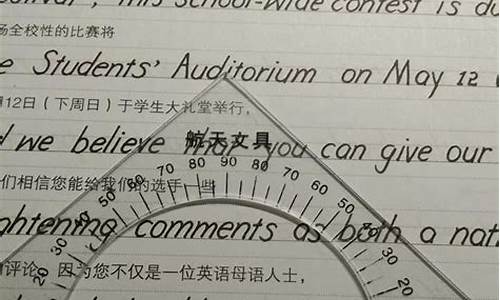 this school-wide contest is
场全校性的比赛将
Students' Auditorium on May 12
月12日（下周日）于学生大礼堂举行，
we believe that you can give our
们相信您能给我们的选手一些
航天文具
50 60 70 80 90 80 70 60 50 40 30 20
40 30 20
comments as both a nat
评论，因为您不仅是一位英语母语人士，